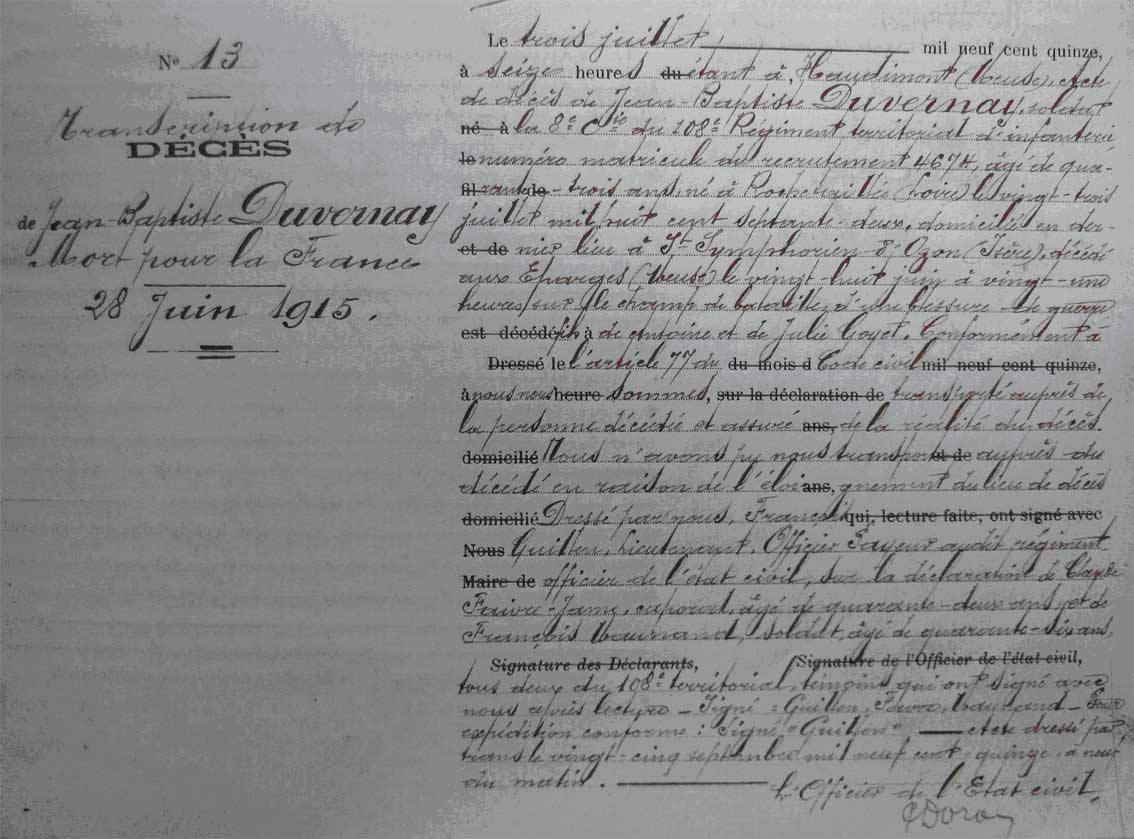 No 13
Transcription de
DÉCÈS
de Jean-Baptiste Duvernay
Mort pour la France
28 Juin 1915.
Le trois juillet mil neuf cent quinze,
à seize heures du étant à Haudimont (Meuse), acte
de décès de Jean-Baptiste Duvernay, soldat
né à la 8e Cie du 108e Régiment territorial d'infanterie
le numéro matricule du recrutement 4674, âgé de qua-
fil rante de -trois ans, né à Rochetaillée (Loire) le vingt-trois
juillet mil huit cent septante-deux, domicilié en der-
et de nier lieu à St Symphorien d'Ozon (Isère), décédé
aux Eparges (Meuse) le vingt-huit juin à vingt-une
heures, sur le champ de bataille, d'une blessure de guerre
est décédé, fils à de Antoine et de Julie Goyet. Conformément à
Dressé le l'article 77 du du mois d Code civil mil neuf cent quinze,
à nous nous heure sommes, sur la déclaration de transporté auprès de
la personne décédée et assuré ans, de la réalité du décès.
domicilié Nous n'avons pu nous transporter et de auprès du
décédé en raison de l'éloi ans, gnement du lieu de décès
domicilié Dressé par nous, François qui, lecture faite, ont signé avec
Nous Guillen, Lieutenant, Officier Payeur audit régiment
Maire de officier de l'état civil, sur la déclaration de Claude
Faivre-Jame, caporal, âgé de quarante-deux ans, et de
François soldat, âgé de quarante-six ans,
Signature des Déclarants, Signature de l'Officier de l'état civil,
tous deux du 108e territorial, témoins qui ont signé avec
nous après lecture – Signé : Guillen, Faivre, – Pour
expédition conforme : Signé "Guillen", — acte dressé par
trans le vingt-cinq septembre mil neuf cent quinze, à neuf
du matin.
L'Officier de l'Etat civil,